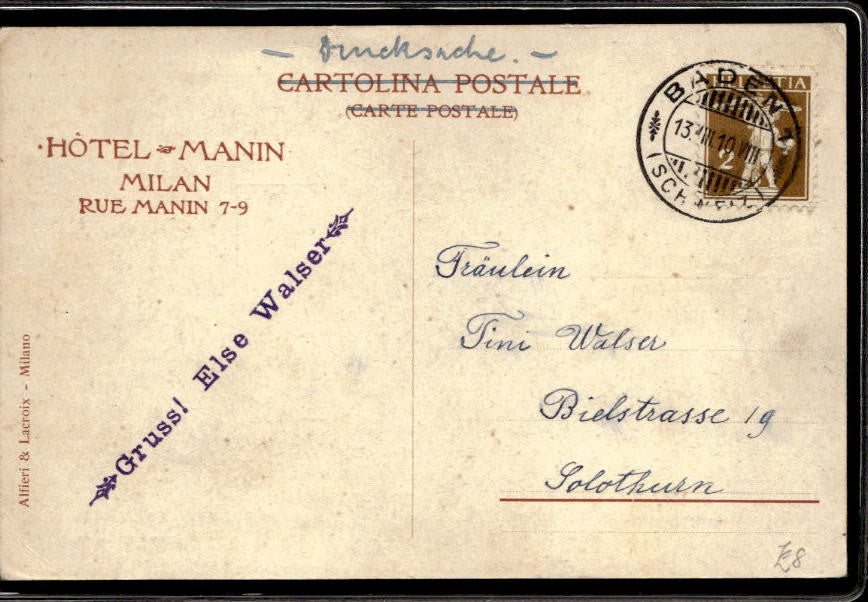 — Drucksache. —
CARTOLINA POSTALE
(CARTE POSTALE)
HÔTEL MANIN
MILAN
RUE MANIN 7-9
BADEN 1
HELVETIA
13.VIII.10.VIII
2
(SCHWEIZ)
Gruss! Else Walser
Fräulein
Tini Walser
Bielstrasse 19
Solothurn
Alfieri & Lacroix - Milano